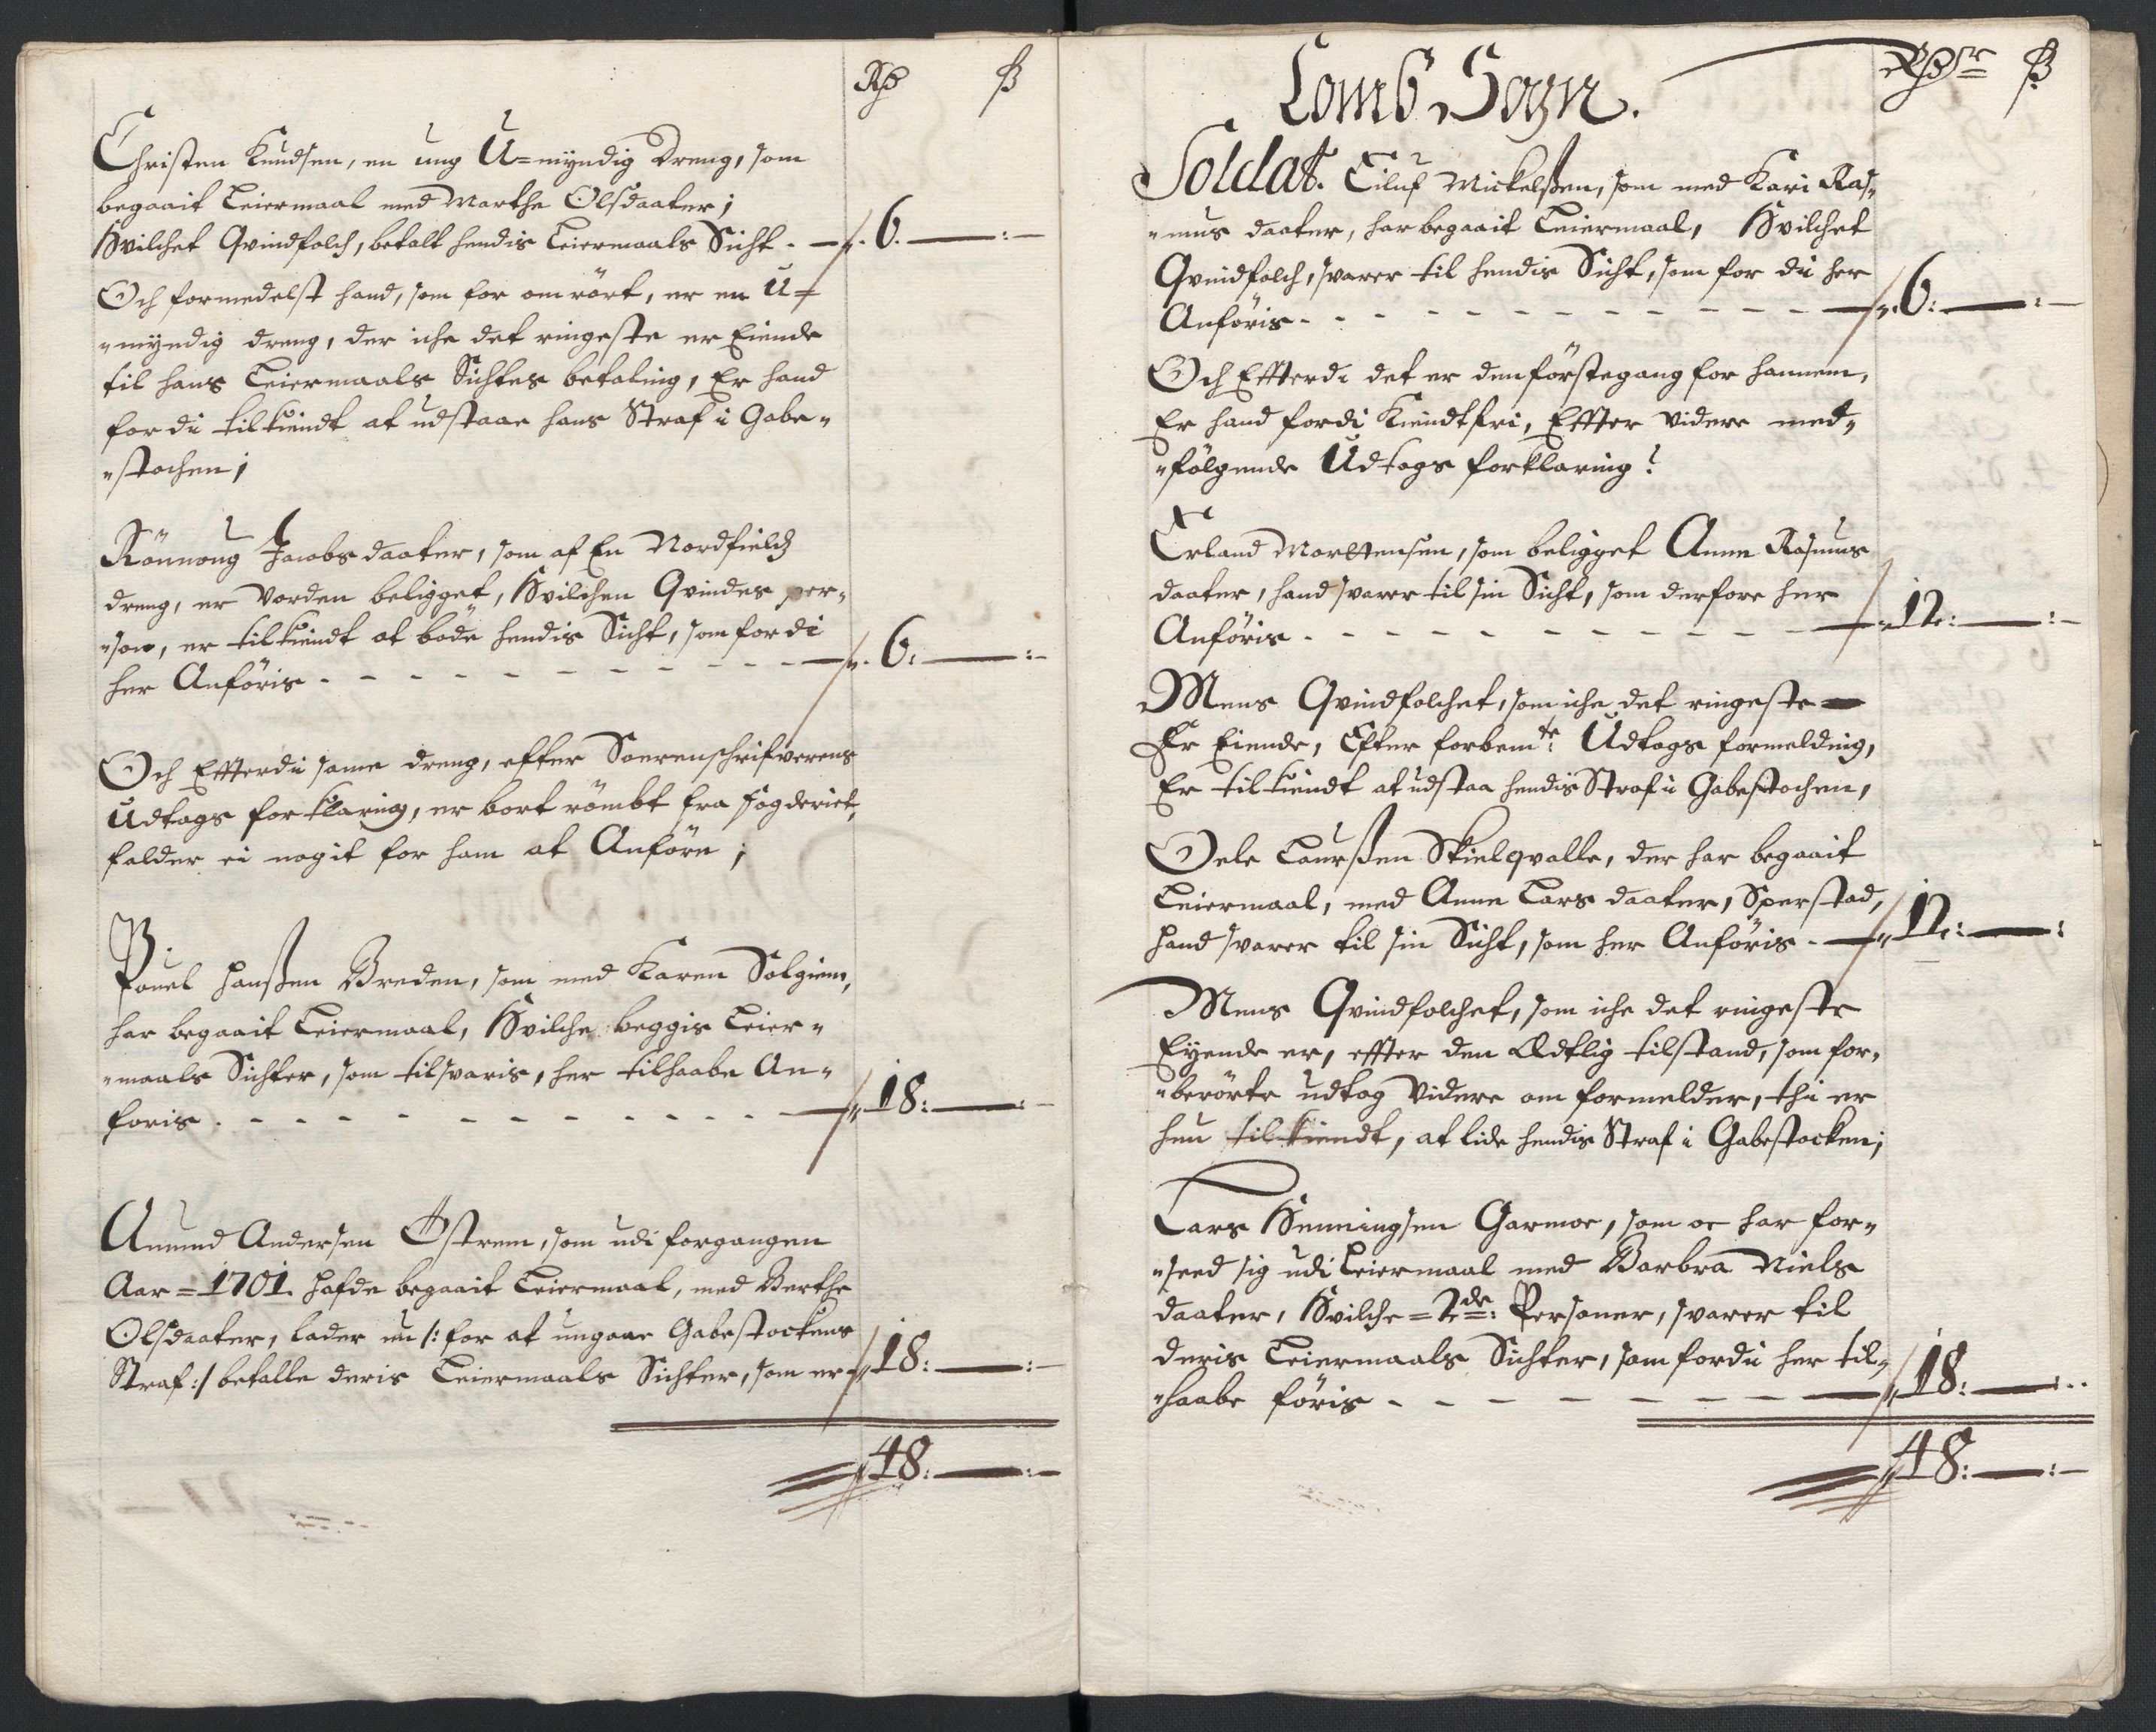 Rdr ß
Christen Knudsen, en ung U=myndig Dreng, som
begaait Leiermaal med Marthe Olsdaater;
Hvilchet Qvindfolch, betalt hendis Leiermaals Sicht. — 6. — : —
Och formedelst hand, som for omrört, er en U=
"myndig dreng, der iche det ringeste er Eiende
til hans Leiermaals Sichtes betaling, Er hand
for di tilkiendt at udstaae hans Straf i Gabe"
"stochen;
Rönnoug Jacobs daater, som af En Nordfields
dreng, er vorden beligget, Hvilchen Qvindes per"
"son, er tilkiendt at bøde hendis Sicht, som for di
her Anföris - - - - - - - - - — 6: — : —
Och Effterdi same dreng, efter Soerenschrifverens
Udtogs forklaring, er bort römbt fra fogderiet,
falder ei nogit for ham at Anföre;
Pouel Hanßen Breden, som med Karen Solgiem,
har begaait Leiermaal, Hvilche beggis Leier"
"maals Sichter, som tilsvaris, her tilhaabe An"
foris. - - - - - - - - - - — 18: — : —
Amund Andersen Östrem, som udi forgangen
Aar = 1701. hafde begaait Leiermaal, med Berthe
Olsdaater, lader nu /: for at ungaae Gabestockens
Straf :/ betalle deris Leiermaals Sichter, som er 18: — : —
48: — : —
Lomb Sogn.
Rdr ß
Soldat. Eiluf Mickelßen, som med Kari Ras"
"mus daater, har begaait Leiermaal, Hvilchet
Qvindfolch, svarer til hendis Sicht, som for di her
Anföris - - - - - - - - - - — 6: — : —
Och Effterdi det er den förstegang for hannem,
Er hand fordi Kiendt fri, Effter videre med"
"fölgende Udtogs forklaring!
Erland Morttensen, som beligget Anne Rasmus
daater, hand svarer til sin Sicht, som derfore her
Anföris - - - - - - - - - - — 12: — : —
Mens Qvindfolchet, som iche det ringeste —
Er Eiende, Efter forbemte: Udtogs formelding,
Er tilkiendt at udstaa hendis Straf i Gabestochen,
Oele Laurßen Skielqvalle, der har begaait
Leiermaal, med Anne Lars daater, Sperstad,
hand svarer til sin Sicht, som her Anföris. — 12: — :
Mens Qvindfolchet, som iche det ringeste
Eyende er, effter den Ædtlig tilstand, som for"
"berörte udtog videre om formelder, thi er
hun tilkiendt, at lide hendis Straf i Gabestocken;
Lars Henningsen Garmoe, som oc har for"
"seed sig udi Leiermaal med Barbra Niels
daater, Hvilche = 2de: Personer, svarer til
deris Leiermaals Sichter, som fordi her til"
"haabe föris - - - - - - — 18: — : -
48: — : —